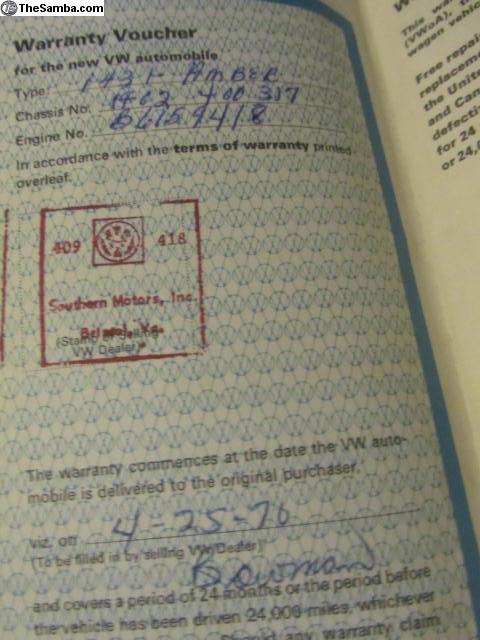 TheSamba.com
Warranty Voucher
for the new VW automobile
Type: 1431 - AMBER
Chassis No. 1402 400 317
Engine No.
In accordance with the terms of warranty printed
overleaf.
409 418
Southern Motors, Inc.
(Stamp of selling
VW Dealer)
The warranty commences at the date the VW auto-
mobile is delivered to the original purchaser,
viz. on 4-25-70
(To be filled in by selling VW Dealer)
Bowman
and covers a period of 24 months or the period before
the vehicle has been driven 24,000 miles, whichever
any warranty claim
W
This
(VWoA),
wagen vehic
Free repai
replaceme
the Unite
and Can
defecti
for 24
or 24,0